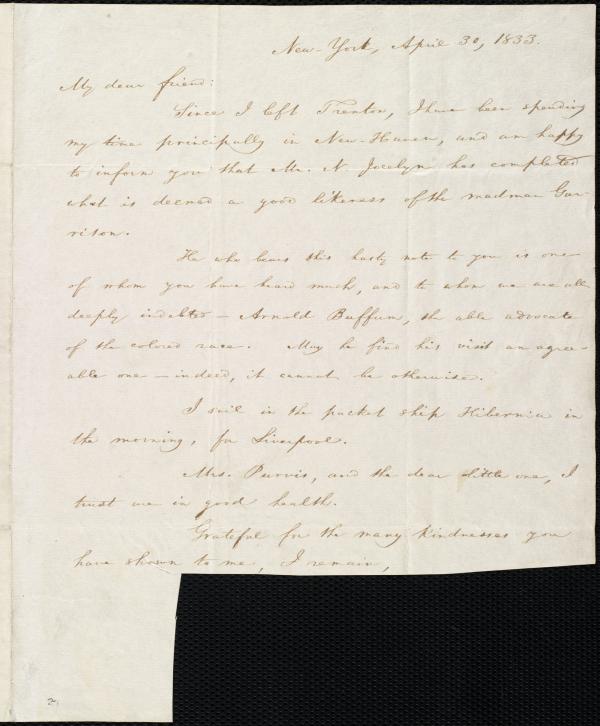 New-York, April 30, 1833.
My dear friend:
Since I left Trenton, I have been spending
my time principally in New-Haven, and am happy
to inform you that Mr. N. Jocelyn has completed
what is deemed a good likeness of the madman Gar-
rison.
He who bears this hasty note to you is one
of whom you have heard much, and to whom we are all
deeply indebted — Arnold Buffum, the able advocate
of the colored race. May he find his visit an agree-
able one — indeed, it cannot be otherwise.
I sail in the packet ship Hibernia in
the morning, for Liverpool.
Mrs. Purvis, and the dear little one, I
trust are in good health.
Grateful for the many kindnesses you
have shown to me, I remain,